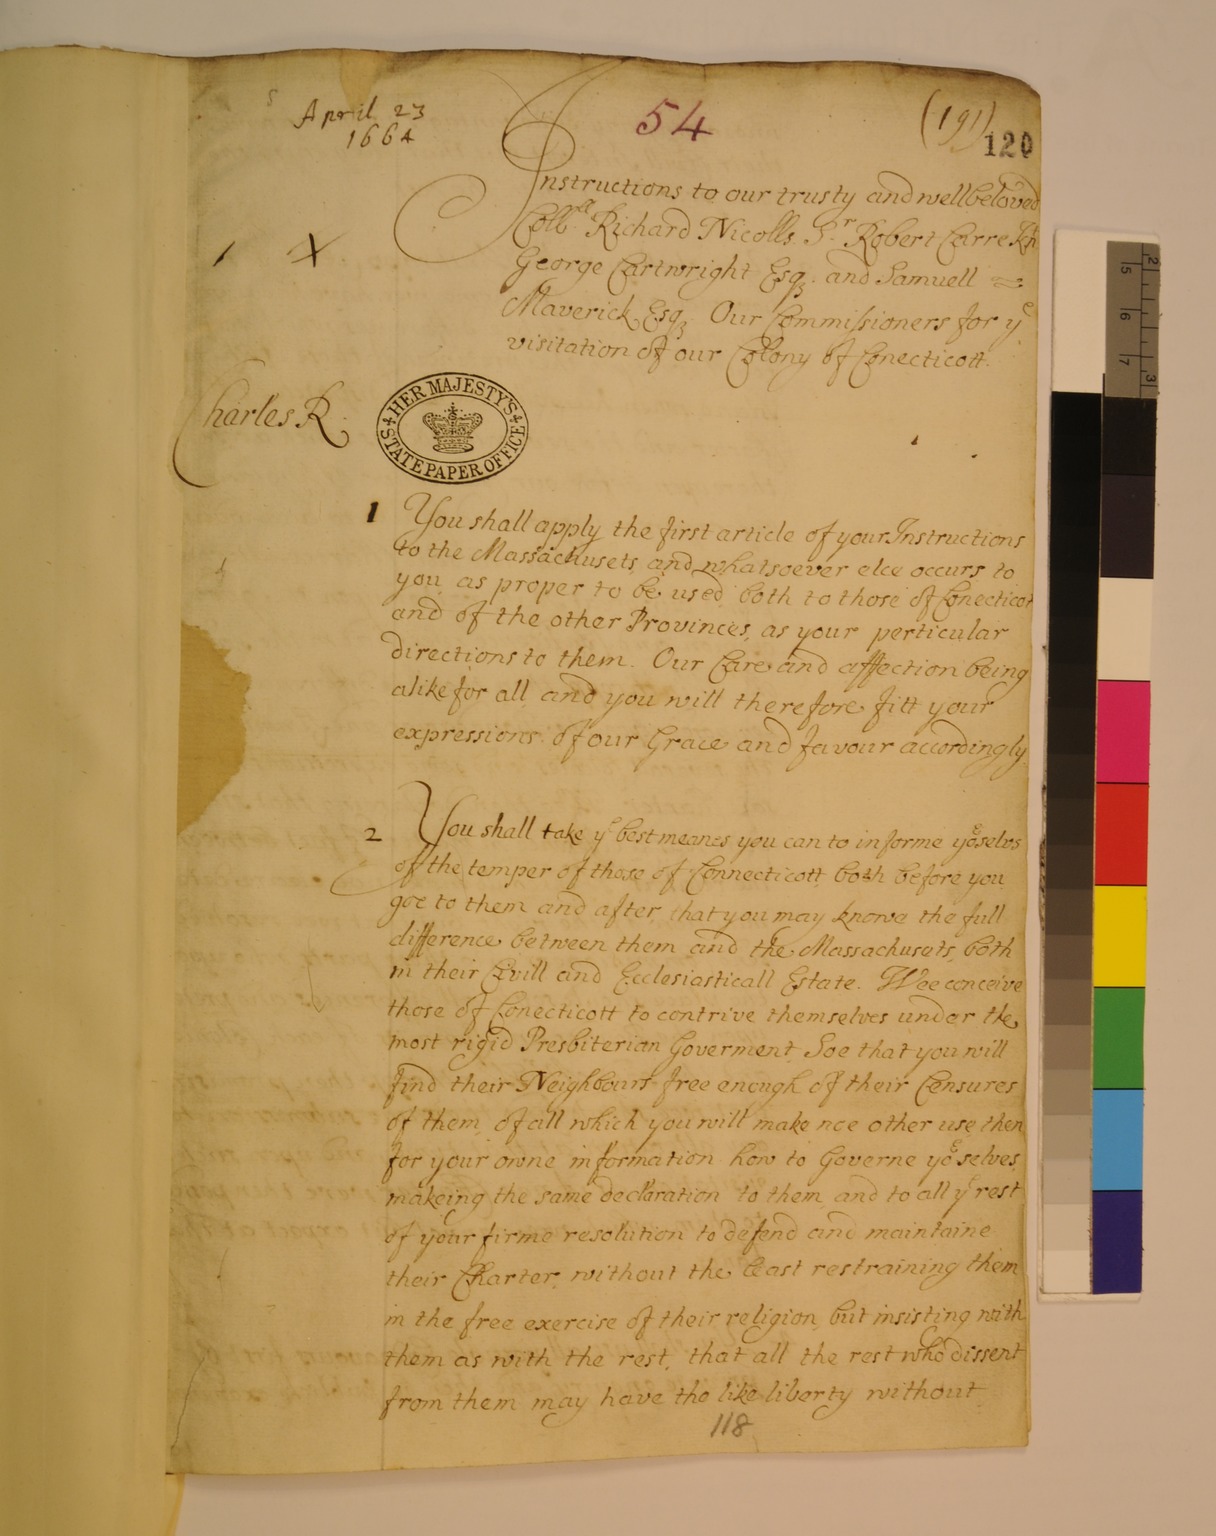 April 23
1664
54
(191)
120
Instructions to our trusty and wellbeloved
Coll. Richard Nicolls. Sr. Robert Carre Kt
George Cartwright Esq. and Samuell
Maverick Esq. Our Commissioners for ye
visitation of our Colony of Conecticott.
Charles R
HER MAJESTY'S
STATE PAPER OFFICE
1 You shall apply the first article of your Instructions
to the Massachusets, and whatsoever elce occurs to
you, as proper to be used, both to those of Conecticot
and of the other Provinces, as your perticular
directions to them. Our Care and affection being
alike for all, and you will therefore fitt your
expressions of our Grace and favour accordingly
2 You shall take ye best meanes you can to informe yorselvs
of the temper of those of Connecticott, both before you
goe to them and after, that you may knowe the full
difference between them and the Massachusets, both
in their Civill and Ecclesiasticall Estate. Wee conceive
those of Conecticott to contrive themselves under the
most rigid Presbiterian Goverment, Soe that you will
find their Neighbours free enough of their Censures
of them, of all which you will make noe other use, then
for your owne information how to Governe yorselves,
makeing the same declaration to them, and to all ye rest
of your firme resolution to defend and maintaine
their Charter, without the least restraining them
in the free exercise of their religion, but insisting with
them as with the rest, that all the rest who dissent
from them may have the like liberty without
118
5
6
7
2
3